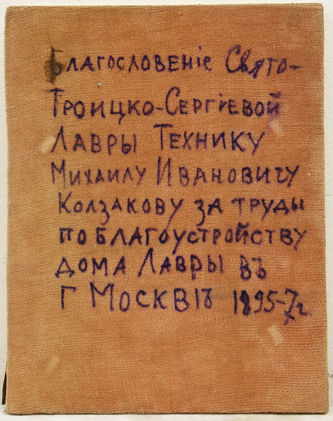 Благословеніе Свято-
Троицко-Сергіевой
Лавры Технику
Михаилу Ивановичу
Колзакову за труды
по благоустройству
дома Лавры въ
г Москвѣ 1895-7г.